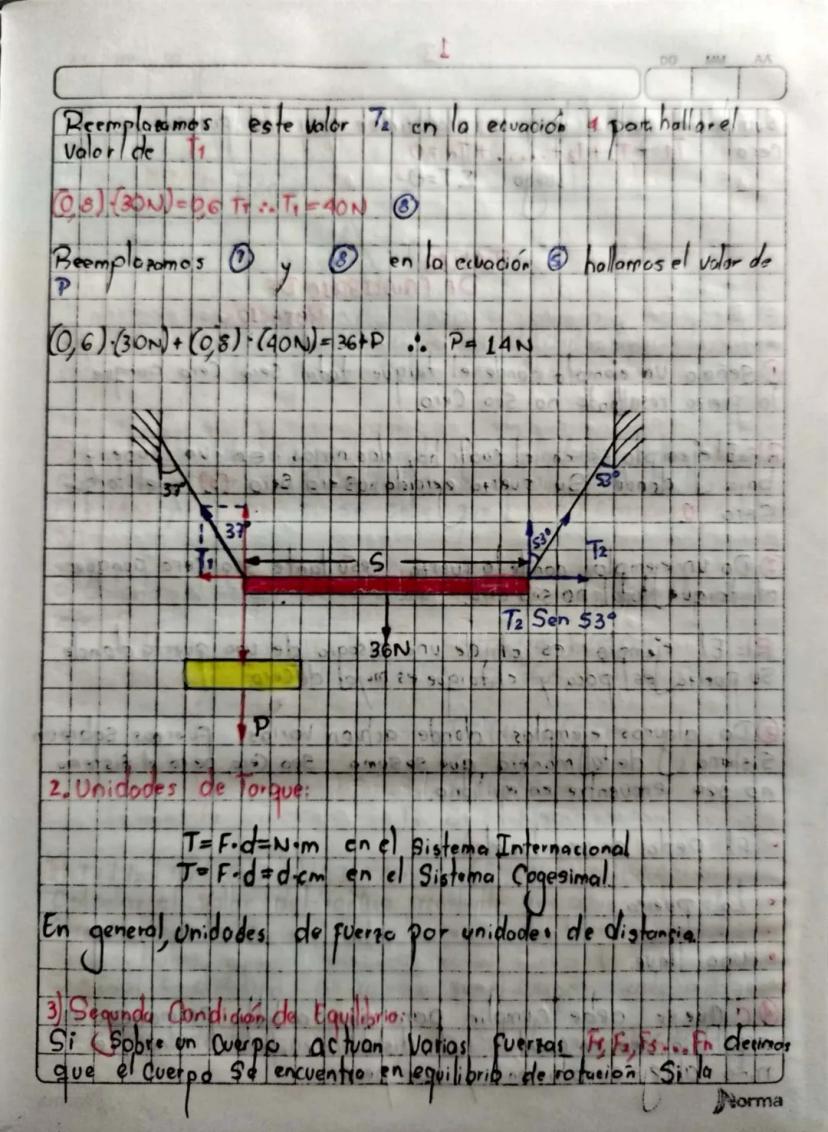 1
DD MM AA
Reemplazamos este valor T2 en la ecuación 4 para hallar el
valor de T1
(0,8)·(30N)=0,6 T1 ∴ T1=40N ⑧
Reemplazamos ⑦ y ⑧ en la ecuación ⑤ hallamos el valor de
P
(0,6)·(30N)+(0,8)·(40N)=36+P ∴ P=14N
37°
53°
37°
53°
T1
S
T2
T2 Sen 53°
36N
P
2. Unidades de Torque:
T=F·d=N·m en el Sistema Internacional
T=F·d=d·cm en el Sistema Cogesimal.
En general, unidades de fuerza por unidades de distancia
3) Segunda Condición de Equilibrio:
Si Sobre un cuerpo actuan Varias fuerzas F1, F2, F3...Fn decimos
que el cuerpo Se encuentra en equilibrio de rotación Si la
Norma